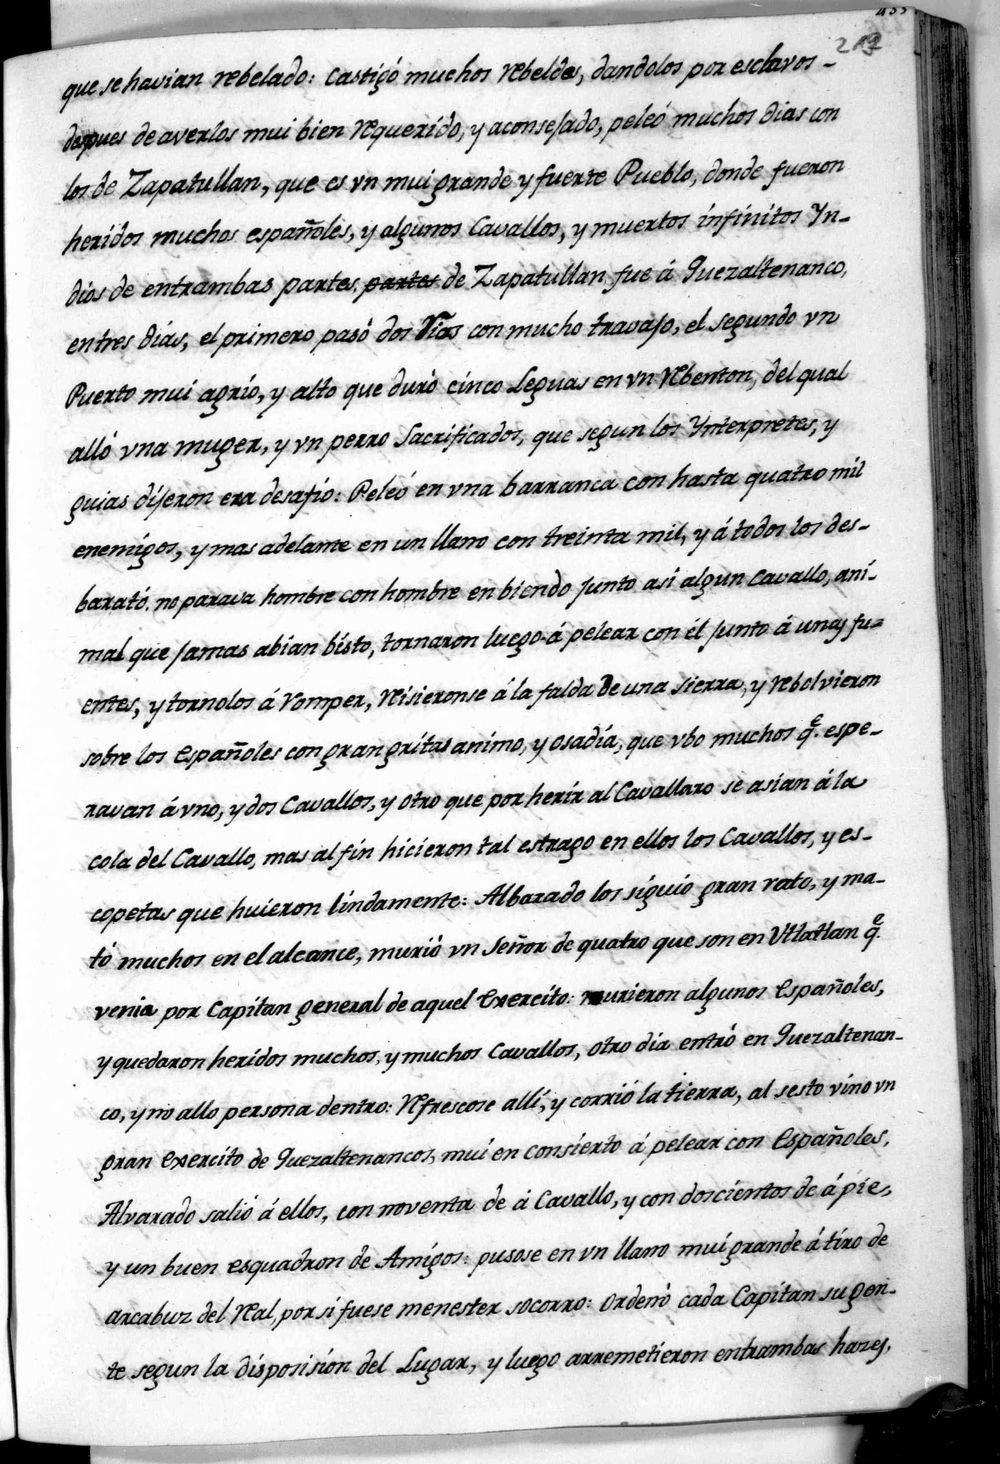 que se havian rebelado: castigó muchos rebeldes, dandolos por esclavos -
despues de averlos mui bien requerido, y aconsejado, peleó muchos dias con
los de Zapatullan, que es vn mui grande y fuerte Pueblo, donde fueron
heridos muchos españoles, y algunos Cavallos, y muertos infinitos Yn-
dios de entrambas partes, partes de Zapatullan fue á Quezaltenanco,
entres dias, el primero pasó dos Rios con mucho travajo, el segundo vn
Puerto mui agrio, y alto que duró cinco Leguas en vn Rbenton, del qual
alló vna muger, y vn perro Sacrificados, que segun los Ynterpretes, y
guias dijeron era desafio: Peleó en vna barranca con hasta quatro mil
enemigos, y mas adelante en un llano con treinta mil, y á todos los des-
barató. no parava hombre con hombre en biendo junto asi algun Cavallo, ani-
mal que jamas abian bisto, tornaron luego á pelear con él junto á unas fu-
entes, y tornolos á Romper, Rhisieronse á la falda de una Sierra, y rebolvieron
sobre los Españoles con gran gritas animo, y osadia, que vbo muchos q.e espe-
ravan á vno, y dos Cavallos, y otro que por herir al Cavallaro se asian á la
cola del Cavallo, mas al fin hicieron tal estrago en ellos los Cavallos, y es-
copetas que huieron lindamente: Albarado los siguió gran rato, y ma-
tó muchos en el alcance, murió vn Señor de quatro que son en Vtlatlan q.e
venia por Capitan general de aquel Exercito: murieron algunos Españoles,
y quedaron heridos muchos, y muchos Cavallos, otro dia entró en Quezaltenan-
co, y no allo persona dentro: Refrescose allí, y corrió la tierra, al sesto vino vn
gran Exercito de Quezaltenancos, mui en consierto á pelear con Españoles,
Alvarado salió á ellos, con noventa de á Cavallo, y con doscientos de á pie,
y un buen esquadron de Amigos: pusose en vn llano mui grande á tiro de
arcabuz del Real, por si fuese menester socorro: ordenó cada Capitan su gen-
te segun la disposision del Lugar, y luego arremetieron entrambas hazes,